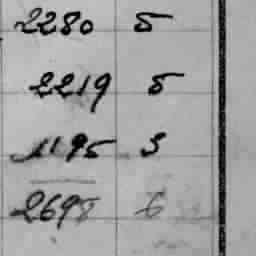 2280 5
2219 5
1195 3
2698 6